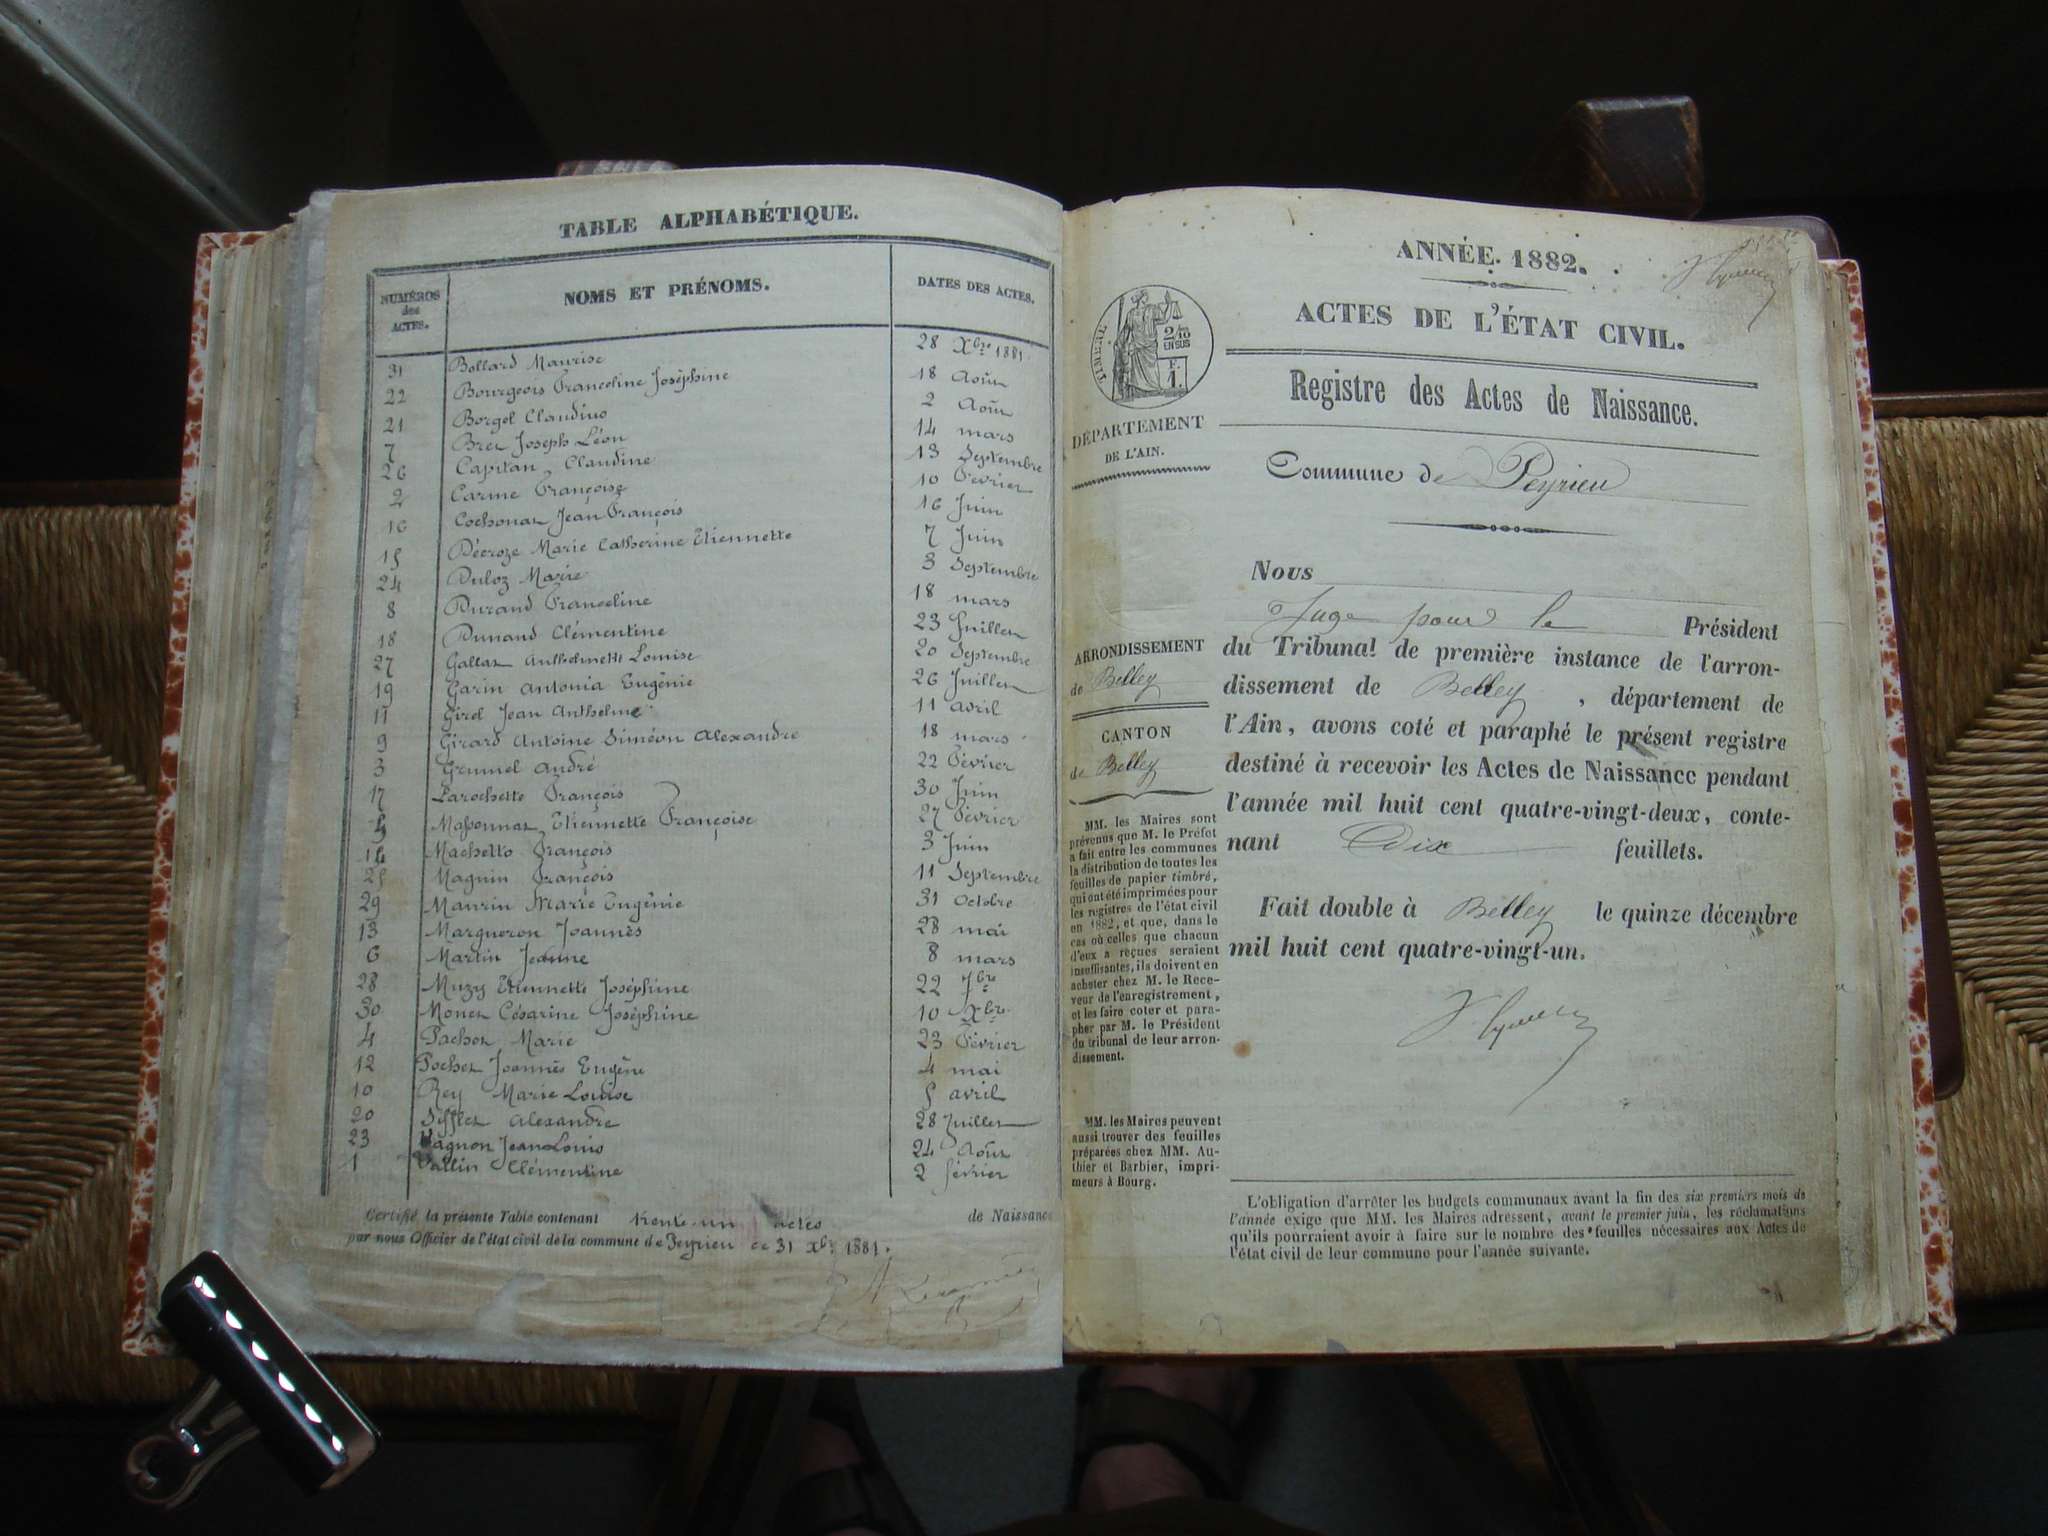 TABLE ALPHABÉTIQUE.
NUMÉROS des ACTES.
NOMS ET PRÉNOMS.
DATES DES ACTES.
31 Bollard Maurise 28 Xbre 1881
22 Bourgeois Franceline Joséphine 18 Août
21 Borgel Claudius 2 Août
7 Joseph Léon 14 mars
26 Capitan Claudine 13 Septembre
2 Carme Françoise 10 Février
16 Cochonat Jean François 16 Juin
15 Décroze Marie Catherine Etiennette 7 Juin
24 Duloz Marie 3 Septembre
8 Durand Franceline 18 mars
18 Dunand Clémentine 23 Juillet
27 Gallat Anthelmette Louise 20 Septembre
19 Garin Antonia Eugénie 26 Juillet
11 Girel Jean Anthelme 11 avril
9 Girard Antoine Siméon Alexandre 18 mars
3 Grumel André 22 Février
17 Larochette François 30 Juin
5 Massonnat Etiennette Françoise 27 Février
14 Machetto François 3 Juin
25 Magnin François 11 Septembre
29 Maurin Marie Eugénie 31 Octobre
13 Margueron Joannès 28 mai
6 Martin Jeanne 8 mars
28 Muzy Etiennette Joséphine 22 7bre
30 Monet Césarine Joséphine 10 Xbre
4 Pachot Marie 23 Février
12 Pochet Joannès Eugène 4 mai
10 Rey Marie Louise 5 avril
20 Sifflet Alexandre 28 Juillet
23 Vagnon Jean Louis 24 Août
1 Vallin Clémentine 2 février
Certifié la présente Table contenant trente-un actes de Naissance
par nous Officier de l'état civil de la commune de Peyrieu ce 31 Xbre 1881.
ANNÉE 1882.
ACTES DE L'ÉTAT CIVIL.
TIMBRE
2/10 EN SUS
F. 1.
Registre des Actes de Naissance.
DÉPARTEMENT
DE L'AIN.
Commune de Peyrieu
Nous
Juge pour le Président
du Tribunal de première instance de l'arron-
dissement de Belley, département de
l'Ain, avons coté et paraphé le présent registre
destiné à recevoir les Actes de Naissance pendant
l'année mil huit cent quatre-vingt-deux, conte-
nant Dix feuillets.
Fait double à Belley le quinze décembre
mil huit cent quatre-vingt-un.
ARRONDISSEMENT
de Belley
CANTON
de Belley
MM. les Maires sont
prévenus que M. le Préfet
a fait entre les communes
la distribution de toutes les
feuilles de papier timbré,
qui ont été imprimées pour
les registres de l'état civil
en 1882, et que, dans le
cas où celles que chacun
d'eux a reçues seraient
insuffisantes, ils doivent en
acheter chez M. le Rece-
veur de l'enregistrement,
et les faire coter et para-
pher par M. le Président
du tribunal de leur arron-
dissement.
MM. les Maires peuvent
aussi trouver des feuilles
préparées chez MM. Au-
thier et Barbier, impri-
meurs à Bourg.
L'obligation d'arrêter les budgets communaux avant la fin des six premiers mois de
l'année exige que MM. les Maires adressent, avant le premier juin, les réclamations
qu'ils pourraient avoir à faire sur le nombre des feuilles nécessaires aux Actes de
l'état civil de leur commune pour l'année suivante.